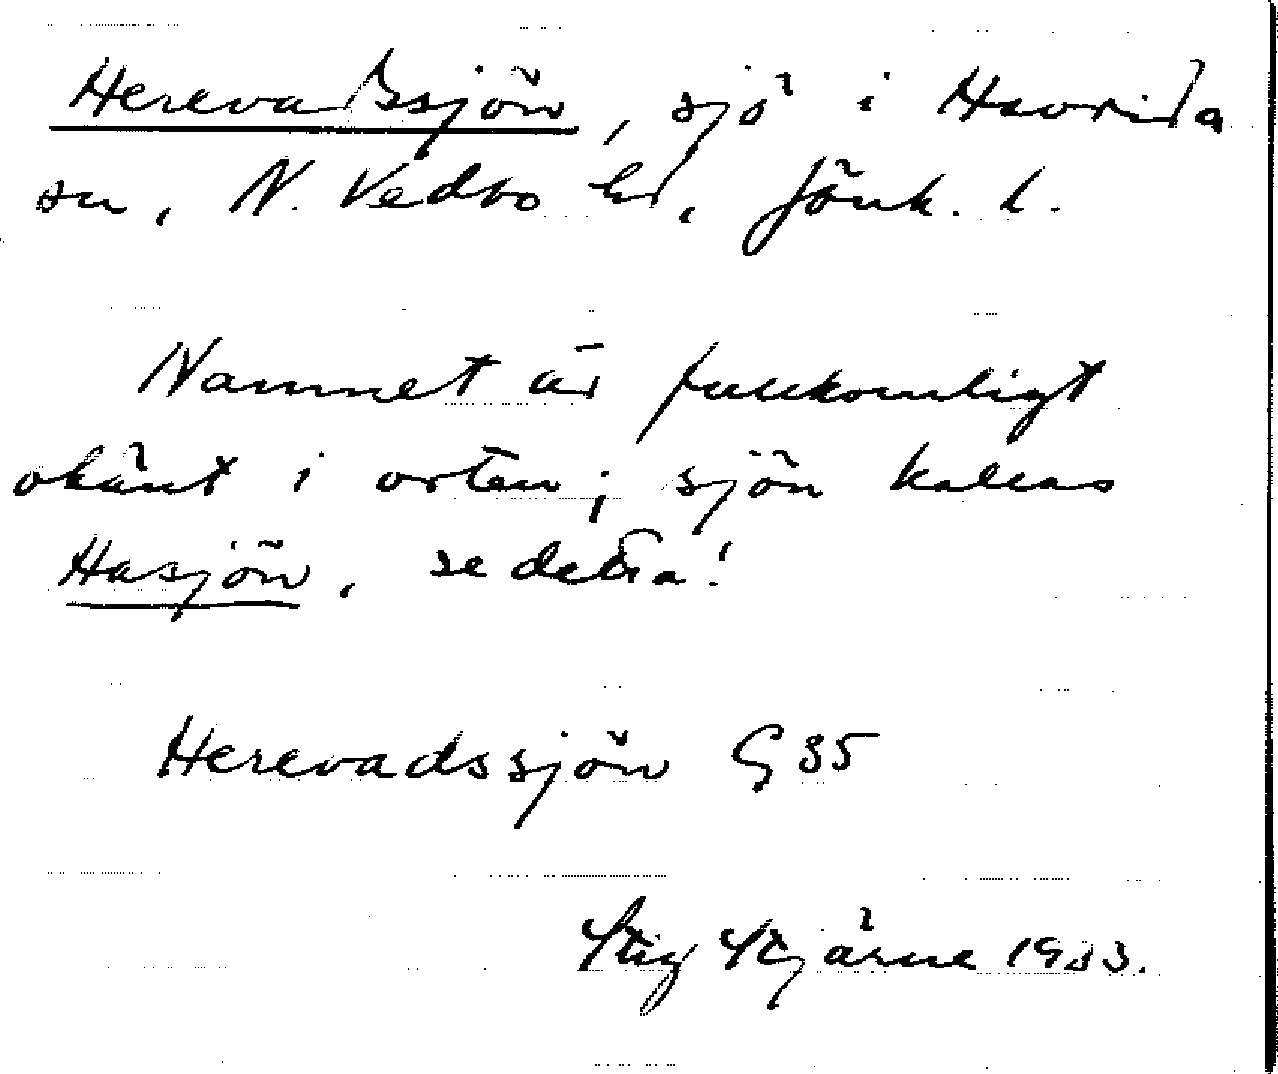 Herevadssjön, sjö i Haurida
sn, N. Vedbo hd, Jönk. l.
Namnet är fullkomligt
okänt i orten; sjön kallas
Hasjön, se detta!
Herevadssjön G 35
Stig Stjärne 1933.